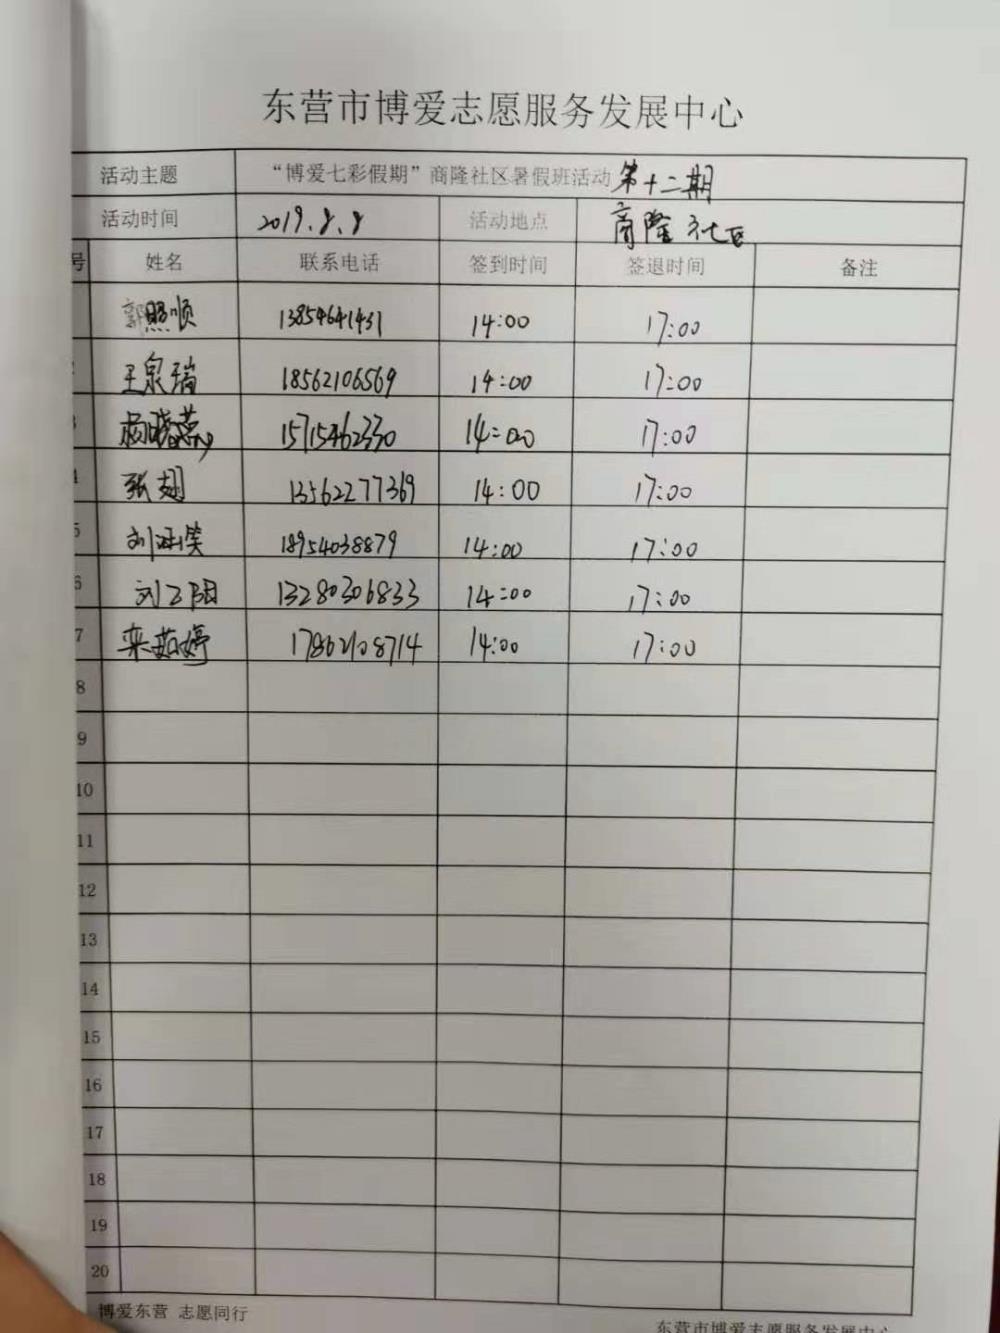 东营市博爱志愿服务发展中心
活动主题 “博爱七彩假期”商隆社区暑假班活动 第十二期
活动时间 2019.8.8 活动地点 商隆社区
号 姓名 联系电话 签到时间 签退时间 备注
郭照顺 13854641431 14:00 17:00
王泉瑞 18562106569 14:00 17:00
3 杨晓燕 15715462330 14:00 17:00
张翅 13562277369 14:00 17:00
5 刘 18954038879 14:00 17:00
6 刘 阳 13280306833 14:00 17:00
7 栾茹婷 17862108714 14:00 17:00
8
9
10
11
12
13
14
15
16
17
18
19
20
博爱东营 志愿同行
东营市博爱志愿服务发展中心